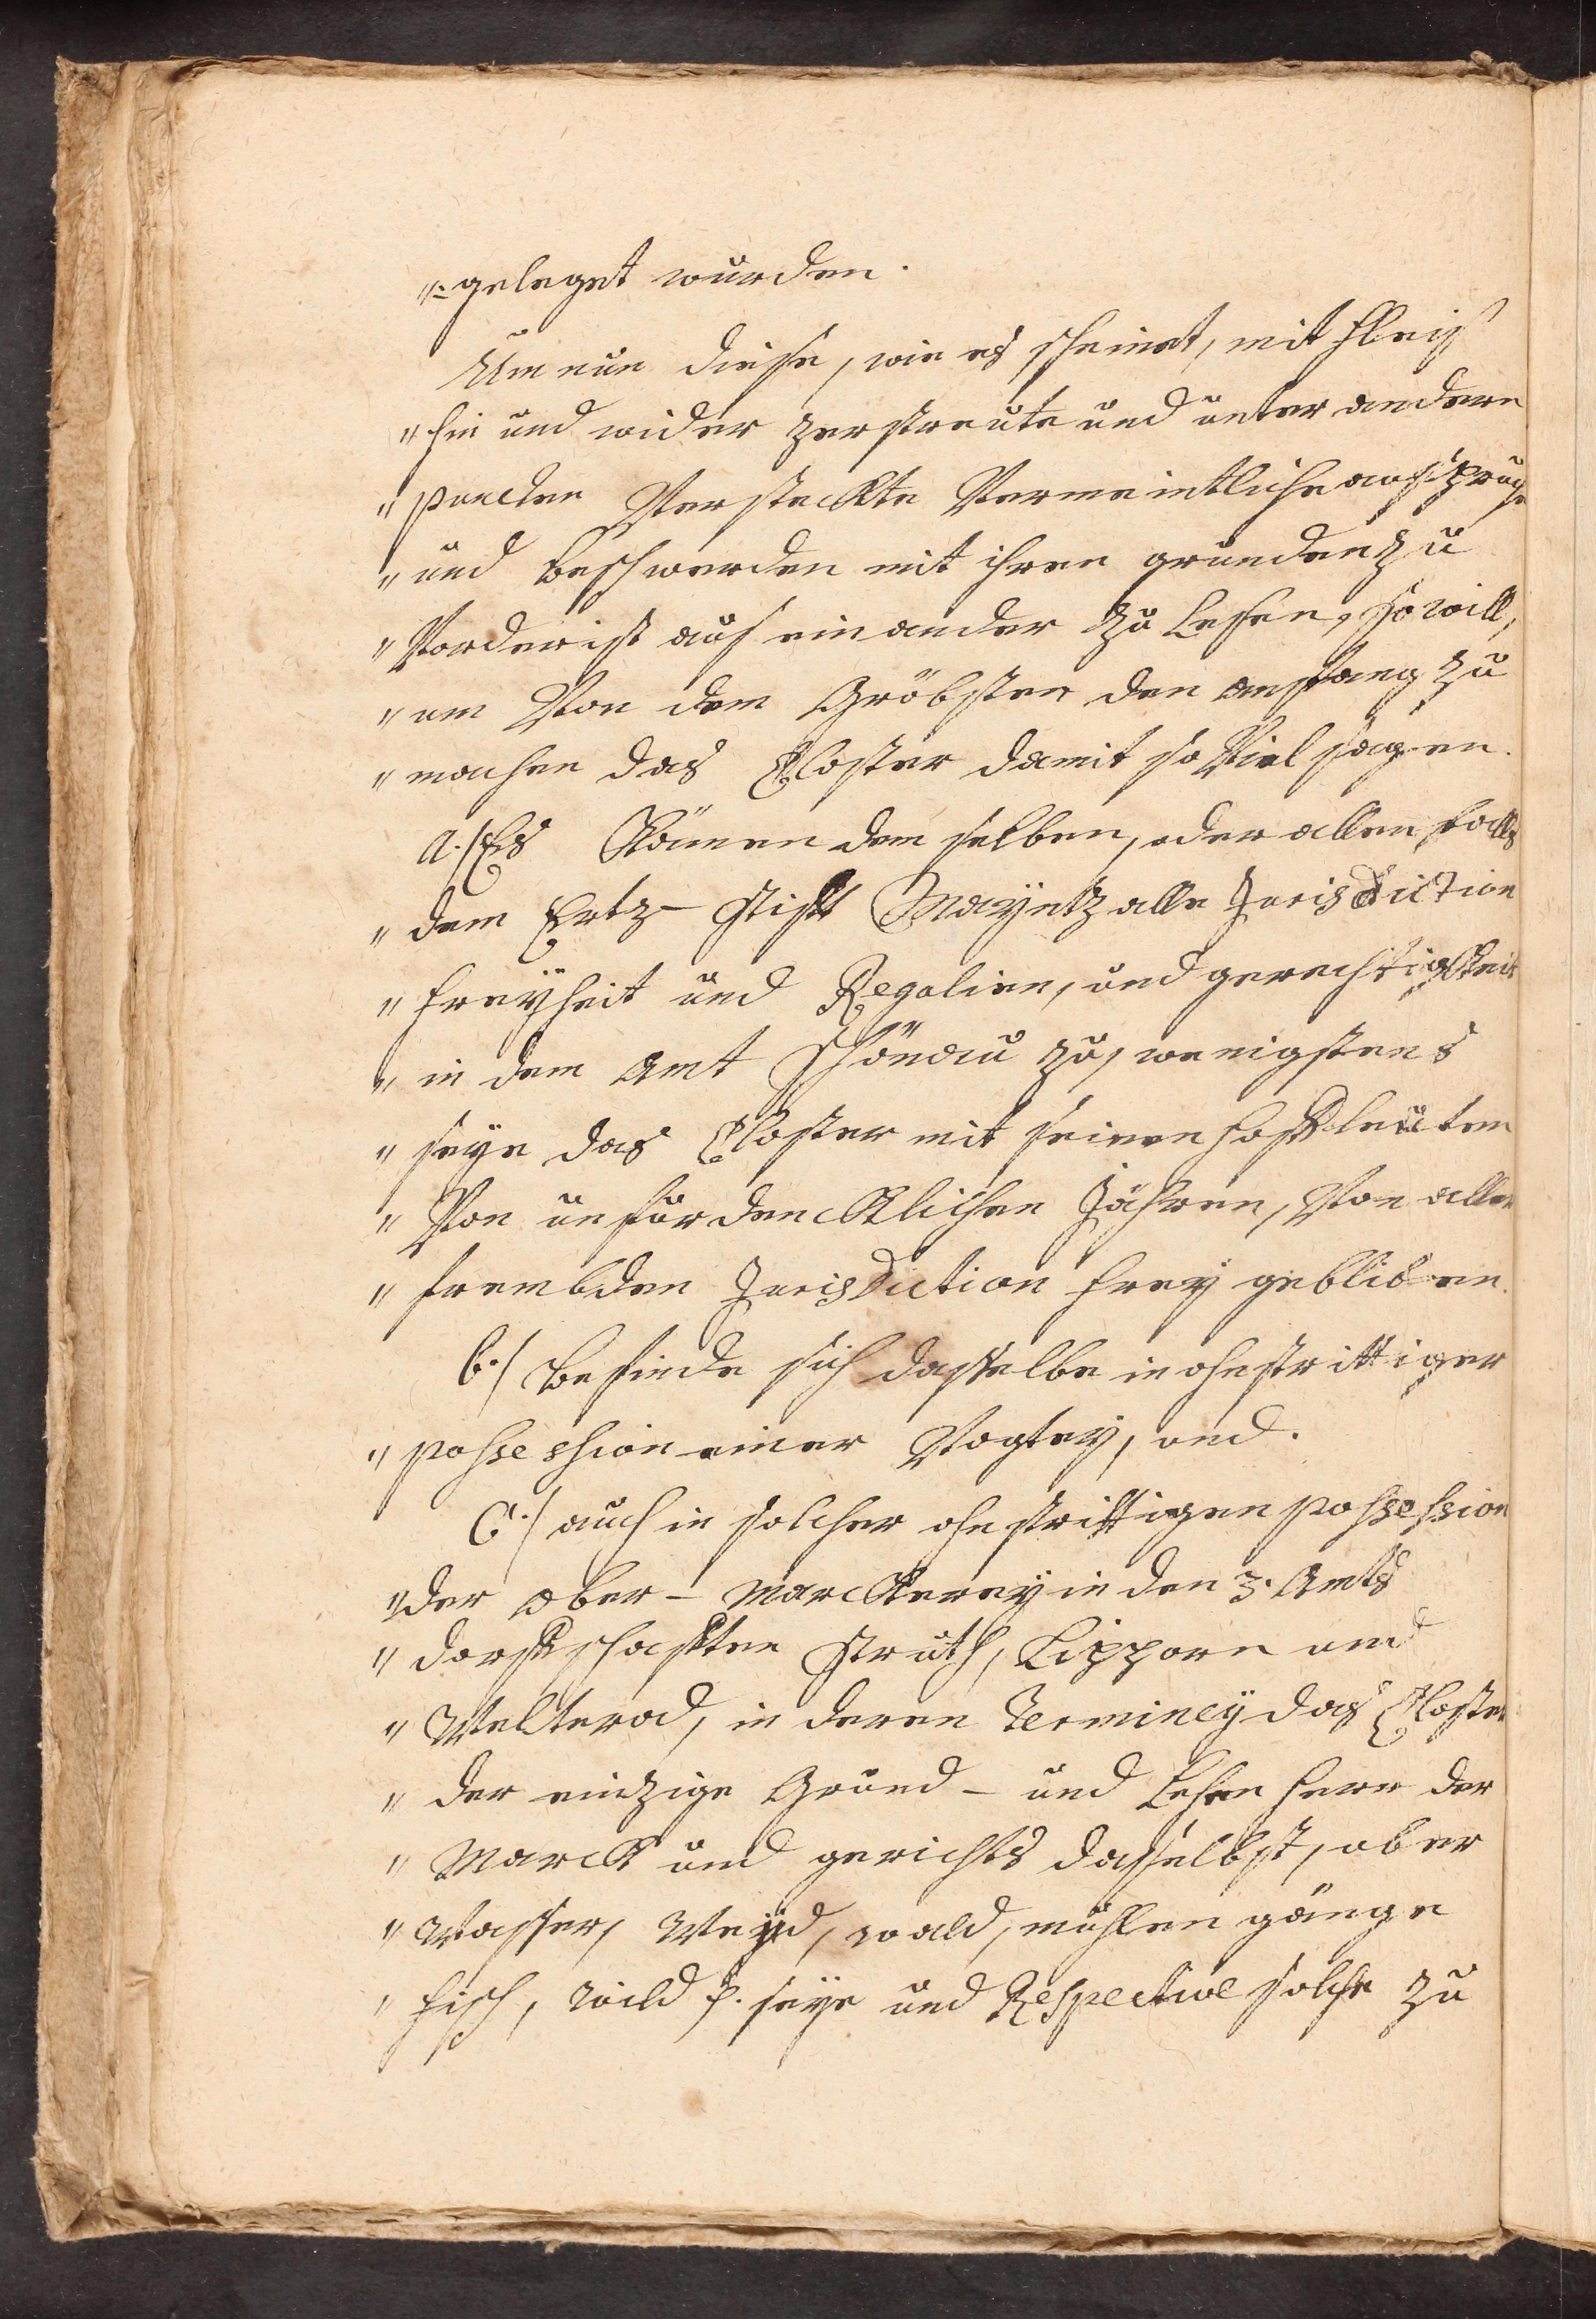 "=geleget wurden.
Um nun diese, wie es scheinet, mit fleiß
" hin und wider zerstreute und unter andern
" puncten Versteckte Vermeintliche ansprüche
" und beschwerden mit ihren gründen zu
" Vorderist aus einander zu lesen, so will,
" um Von dem Gröbsten den anfang zu
" machen das Closter damit so Viel sagen.
a./ Es Kämen dem selben, oder allen falls
" dem Ertz-Stifft Mayntz alle Jurisdiction
" freyheit und Regalien, und gerechtigkeit
" in dem Amt Schönau zu, wenigstens
" seye das Closter mit seinen hoffleuten
" Von unfürdencklichen Jahren, Von aller
" frembden Jurisdiction frey gebliben.
b./ befinde sich dasselbe in ohnstrittiger
" possession einer Vogtey, und.
C./ auch in solcher ohnstrittigen possession
" der Ober-Marckerey in den 3. Amts
" dorffschafften Struth, Lipporn und
" Welterod, in deren Terminey das Closter
" der eintzige Grund- und Lehen herr der
" Marck und gerichts dasselbst, über
" Wasser, Weyd, wald, mühlen gänge
" fisch, wild p. seye und Respective solche zu